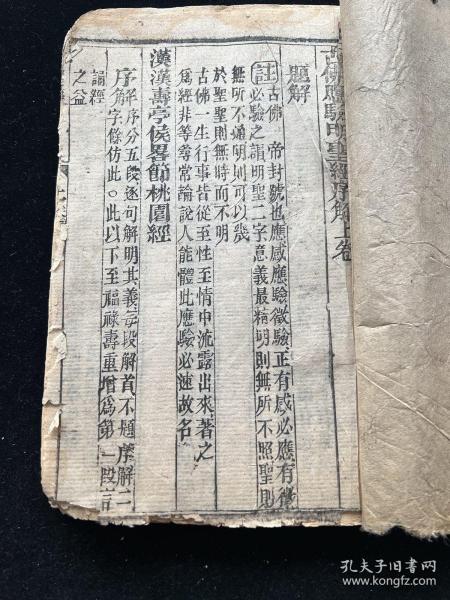 古佛應驗明聖經序解上卷
題解
註古佛 帝封號也應感應驗徵驗正有感必應有徵
必驗之謂明聖二字意義最精明則無所不照聖則
無所不通明則可以幾
於聖聖則無時而不明
古佛一生行事皆從至性至情中流露出來著之
爲經非等尋常論說人能體此應驗必速故名
漢漢壽亭侯畧節桃園經
序解序分五段逐句解明其義每段解首不題序解二
字餘倣此○此以下至福祿壽重增爲第一段言
誦經
之益
孔夫子旧书网
www.kongfz.com